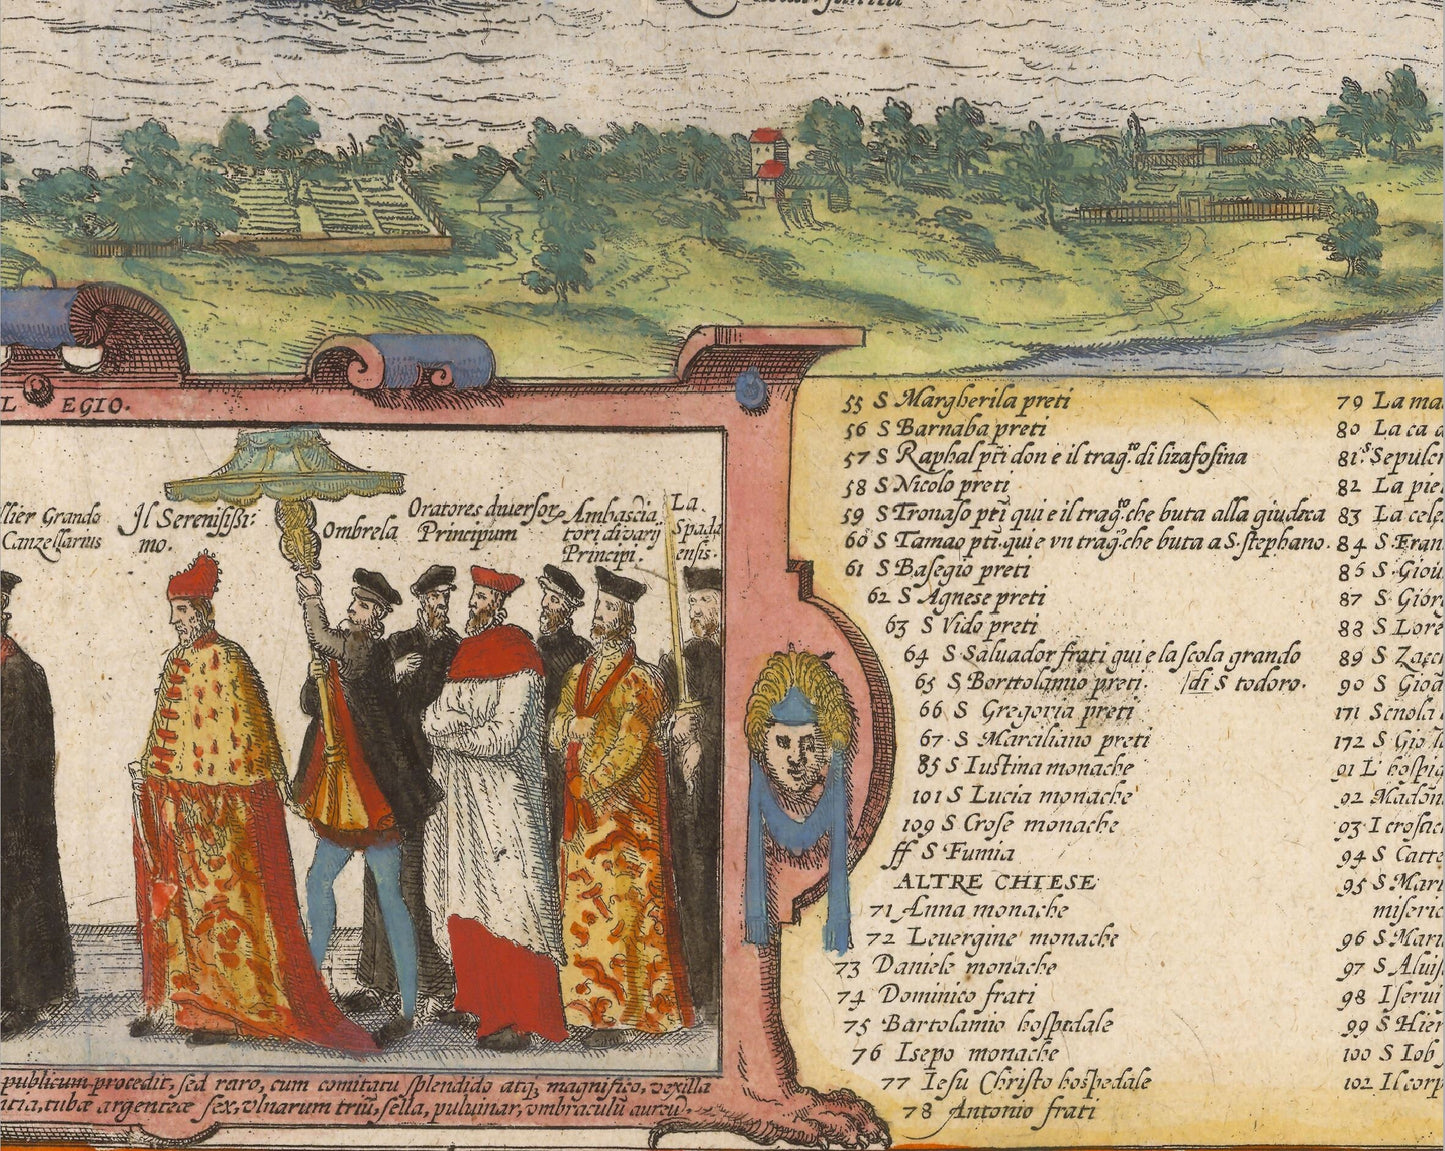 L EGIO.
llier Grando
Canzellarius
Il Sereniſißi:
mo.
Ombrela
Oratores diuersor
Principum
Ambascia
tori di varij
Principi.
La
Spada
ensis.
publicum procedit, ſed raro, cum comitatu ſplendido atq; magnifico, vexilla
tubæ argenteæ ſex, vlnarum triũ, ſella, puluinar, vmbraculũ aureũ.
55 S Margherila preti
56 S Barnaba preti
57 S Raphal pti don e il trag.to di lizafoſina
58 S Nicolo preti
59 S Tronaſo pti qui e il trag.to che buta alla giudeca
60 S Tamao pti. qui e vn trag.o che buta a S. ſtephano.
61 S Baſegio preti
62 S Agnese preti
63 S Vido preti
64 S Saluador frati qui e la ſcola grando
65 S Borttolamio preti. /di S todoro.
66 S Gregoria preti
67 S Marciliano preti
85 S Iuſtina monache
101 S Lucia monache
109 S Croſe monache
ff S Fumia
ALTRE CHIESE
71 Anna monache
72 Leuergine monache
73 Daniele monache
74 Dominico frati
75 Bartolamio hoſpedale
76 Isepo monache
77 Iesu Chriſto hoſpedale
78 Antonio frati
79 La ma
80 La ca
81 S Sepulcr
82 La pie
83 La cele
84 S Fran
86 S Giou
87 S Gior
88 S Lore
89 S Zacc
90 S Gioā
171 Scnola
172 S Gio
91 L' hoſpi
92 Madon
93 I croſac
94 S Catte
95 S Mari
miſeric
96 S Mari
97 S Aluiſ
98 I ſerui
99 S Hier
100 S Iob
102 Il corp